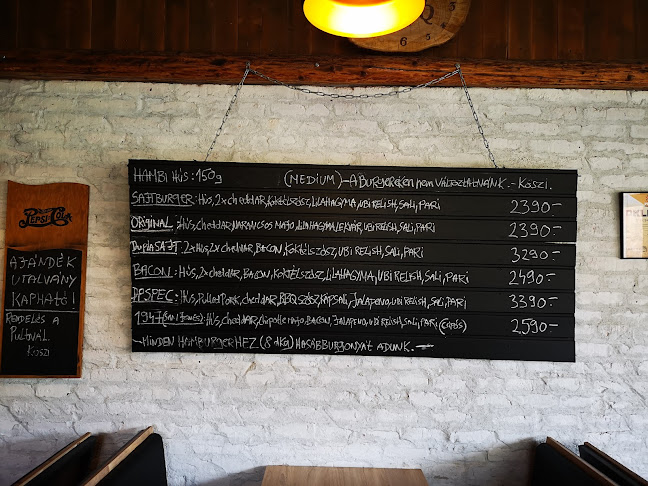 HAMBI HÚS: 150g (MEDIUM) - A BURGEREKEN nem VÁLTOZTATNÁNK. - Köszi.
SAJTBURGER: HÚS, 2x cheddar, KOKTÉLSZÓSZ, LILAHAGYMA, UBI RELISH, SALI, PARI 2390-
ORIGINAL: HÚS, cheddar, NARANCSOS MAJO, LILAHAGYMALEKVÁR, UBI RELISH, SALI, PARI 2390-
Dupla SAJT: 2x HÚS, 2x cheddar, BACON, KOKTÉLSZÓSZ, UBI RELISH, SALI, PARI 3290-
BACON: HÚS, 2x cheddar, BACON, KOKTÉLSZÓSZ, LILAHAGYMA, UBI RELISH, SALI, PARI 2490-
DPSPEC: HÚS, Pulled Pork, cheddar, BBQ SZÓSZ, KÁPSALI, JALAPENO, UBI RELISH, SALI, PARI 3390-
1947 HÚS, cheddar, chipotle majo, BACON, JALAPENO, UBI RELISH, SALI, PARI (CSÍPŐS) 2590-
- MINDEN HAMBURGERHEZ (8 dkg) HASÁBBURGONYÁT ADUNK. -
PEPSI-COLA
AJÁNDÉK
UTALVÁNY
KAPHATÓ!
RENDELÉS A
PULTNÁL
Köszi
6 5